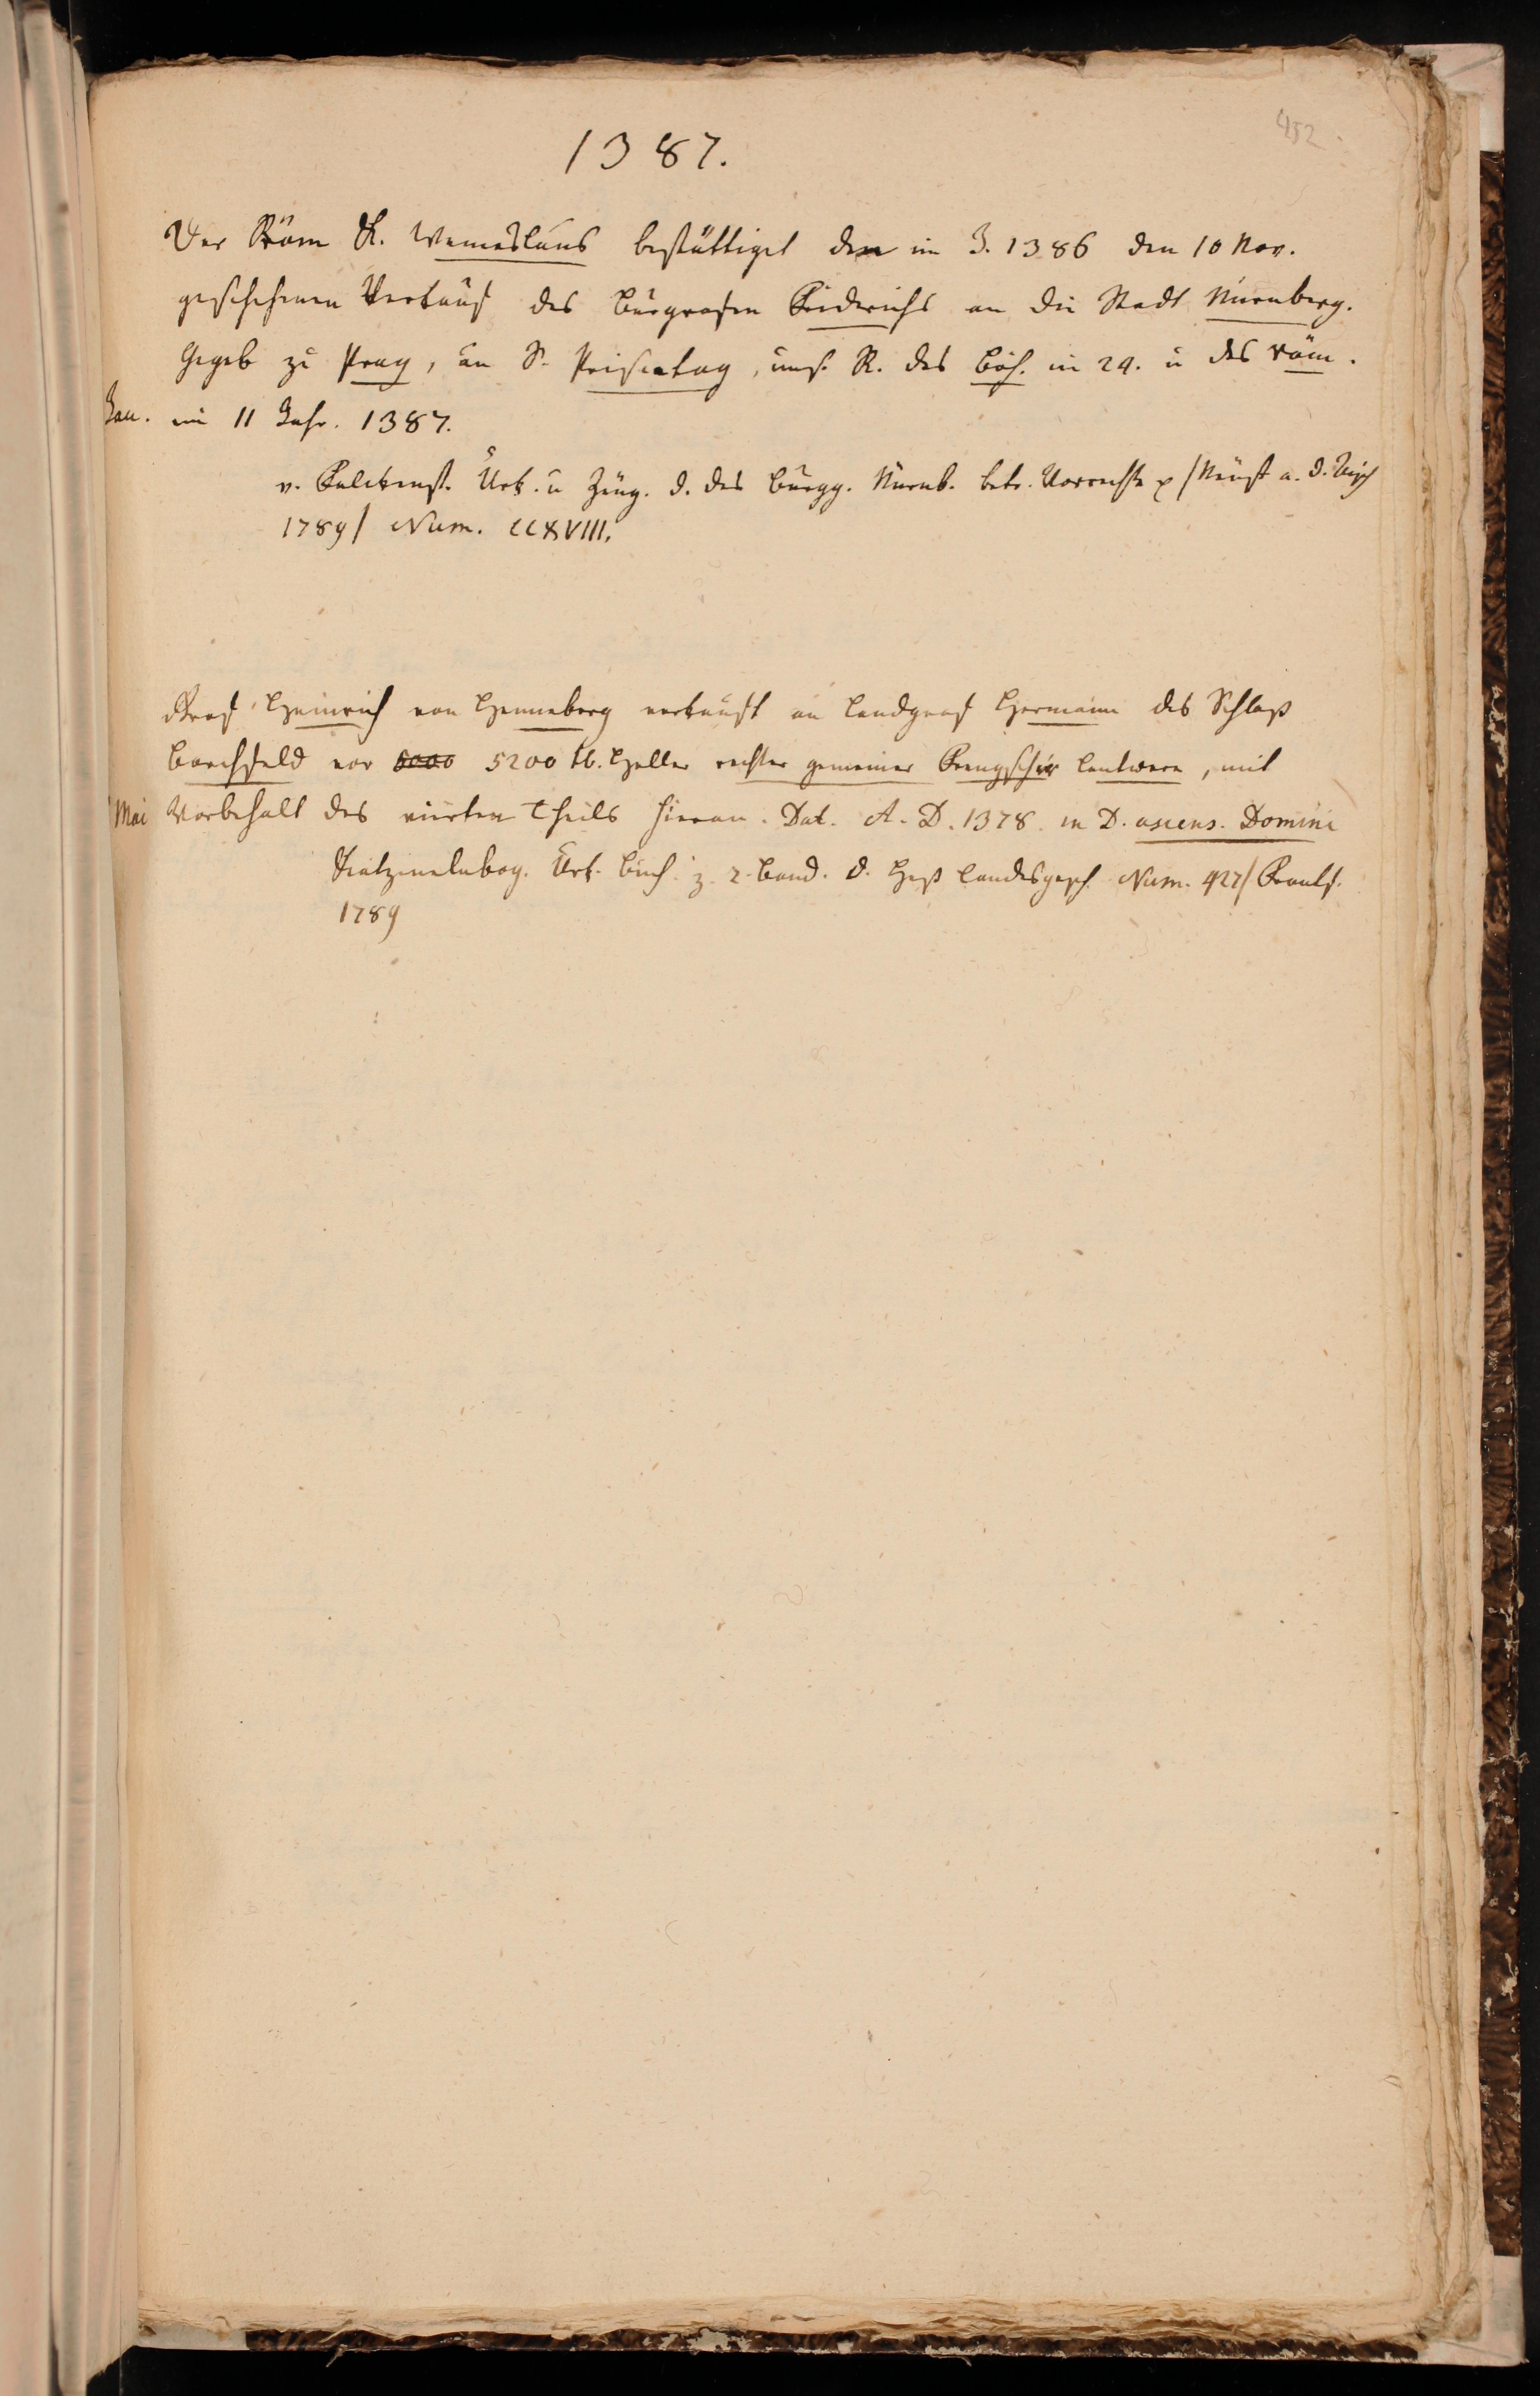 452
1387.
Der Röm K. Wenceslaus bestättiget den im J. 1386 den 10 Nov.
geschehenen Verkauf des Burgrafen Friderichs an die Stadt Nürnberg.
Gegeb zu Prag, an S. Priscatag, uns. R. des Böh. in 24. u des röm.
Jan. im 11 Jahr. 1387.
v. Falckenst. Urk. u Zeug. d. des Burgg. Nürnb. betr. Vorrechte p / Neust a. d. Aisch
1789/ Num. CCXVIII.
Graf Heinrich von Henneberg verkauft an Landgraf Hermann das Schloß
Barchfeld vor 5000 5200 tb. Heller rechter gemeiner Lantwere, mit
Mai Vorbehalt des vierten Theils hieran. Dat. A. D. 1378. in D. ascens. Domini
Katzenelnbog. Urk. Buch z. 2. Band. d. Heß Landesgesch. Num. 427/ Frankf.
1789